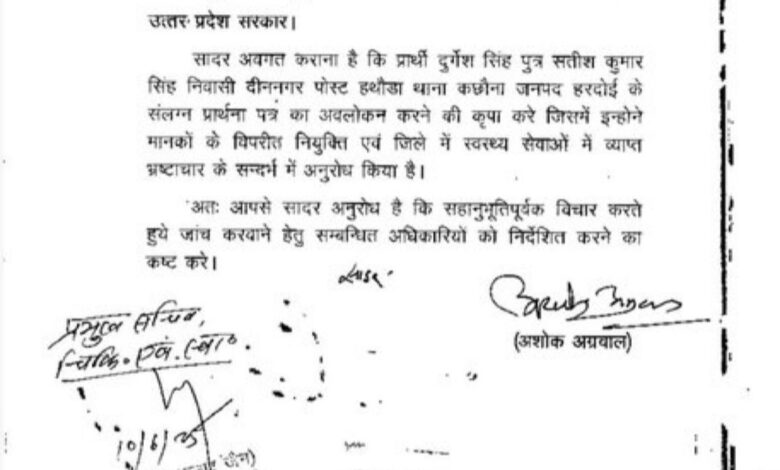 उत्तर प्रदेश सरकार।
सादर अवगत कराना है कि प्रार्थी दुर्गेश सिंह पुत्र सतीश कुमार
सिंह निवासी दीननगर पोस्ट हथौडा थाना कछौना जनपद हरदोई के
संलग्न प्रार्थना पत्र का अवलोकन करने की कृपा करे जिसमें इन्होने
मानकों के विपरीत नियुक्ति एवं जिले में स्वरथ्य सेवाओं में व्याप्त
भ्रष्टाचार के सन्दर्भ में अनुरोध किया है।
अतः आपसे सादर अनुरोध है कि सहानुभूतिपूर्वक विचार करते
हुये जांच करवाने हेतु सम्बन्धित अधिकारियों को निर्देशित करने का
कष्ट करे।
प्रमुख सचिव,
चिकि. एवं. स्वा०
(अशोक अग्रवाल)
10/6/25